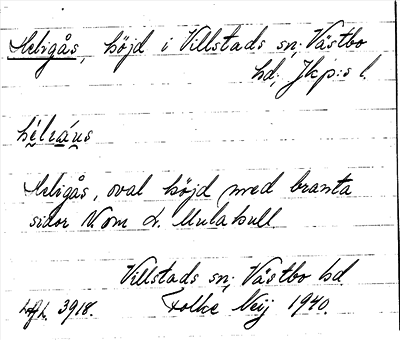 Heligås, höjd i Villstads sn; Västbo
hd; Jkp:s l.
Heligås, oval höjd med branta
sidor N. om L. Mulakull
Villstads sn; Västbo hd.
3918. Folke Neij 1940.